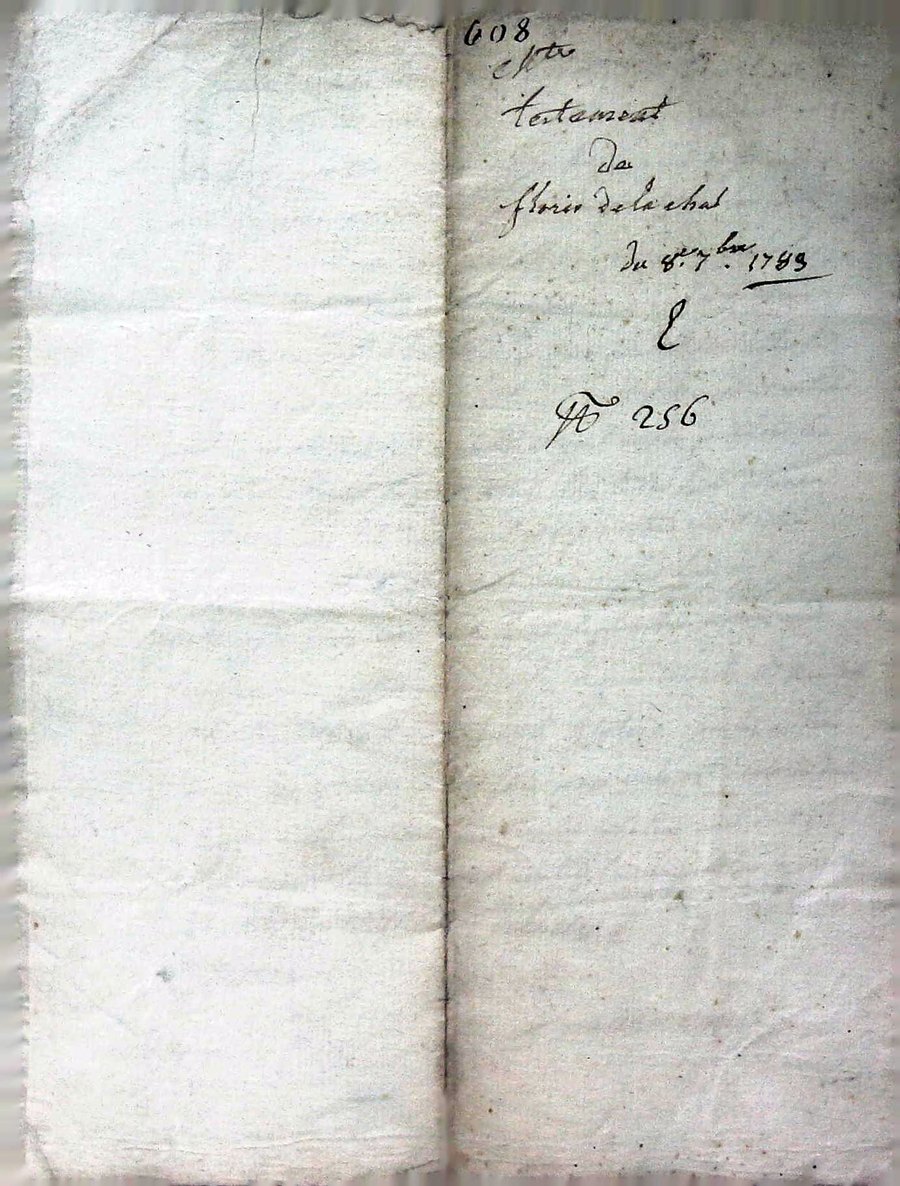 608
testament
De
floris delachal
du 8e. 7bre. 1783
N° 256